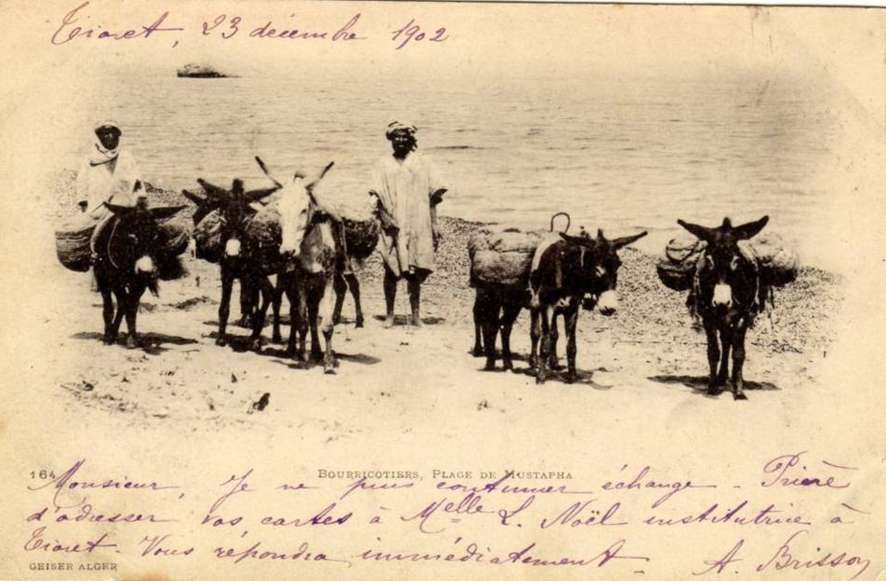 Tiaret, 23 décembre 1902
164 BOURRICOTIERS, PLAGE DE MUSTAPHA
Monsieur, Je ne puis continuer échange - Prière
d'adresser vos cartes à Melle L. Noël institutrice à
Tiaret - Vous répondra immédiatement - A. Brisson
GEISER ALGER